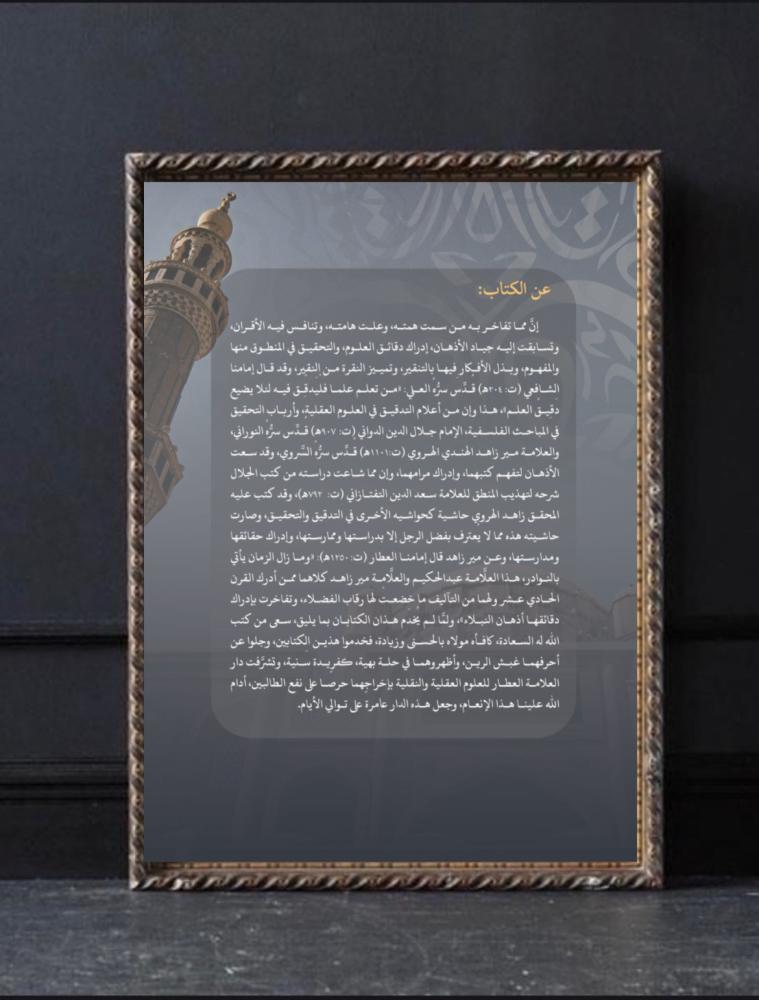 عن الكتاب:
إنَّ مما تفاخر به من سمت همته، وعلت هامته، وتنافس فيه الأقران،
وتسابقت إليه جياد الأذهان، إدراك دقائق العلوم، والتحقيق في المنطوق منها
والمفهوم، وبذل الأفكار فيها بالتنقير، وتمييز النقرة من النقير، وقد قال إمامنا
الشافعي (ت: ٢٠٤ھ) قدَّس سرُّه العلي: «من تعلم علما فليدقق فيه لئلا يضيع
دقيق العلم»، هذا وإن من أعلام التدقيق في العلوم العقلية، وأرباب التحقيق
في المباحث الفلسفية، الإمام جلال الدين الدواني (ت: ٩٠٧ھ) قدَّس سرُّه النوراني،
والعلامة مير زاهد الهندي الهروي (ت:١١٠١ھ) قدَّس سرُّه السَّروي، وقد سعت
الأذهان لتفهم كتبهما، وإدراك مرامهما، وإن مما شاعت دراسته من كتب الجلال
شرحه لتهذيب المنطق للعلامة سعد الدين التفتازاني (ت: ٧٩٢ھ)، وقد كتب عليه
المحقق زاهد الهروي حاشية كحواشيه الأخرى في التدقيق والتحقيق، وصارت
حاشيته هذه مما لا يعترف بفضل الرجل إلا بدراستها وممارستها، وإدراك حقائقها
ومدارستها، وعن مير زاهد قال إمامنا العطار (ت: ١٢٥٠ھ): «وما زال الزمان يأتي
بالنوادر، هذا العلَّامة عبدالحكيم والعلَّامة مير زاهد كلاهما ممن أدرك القرن
الحادي عشر ولهما من التآليف ما خضعت لها رقاب الفضلاء، وتفاخرت بإدراك
دقائقها أذهان النبلاء»، ولمَّا لم يخدم هذان الكتابان بما يليق، سعى من كتب
الله له السعادة، كافأه مولاه بالحسنى وزيادة، فخدموا هذين الكتابين، وجلوا عن
أحرفهما غبش الرين، وأظهروهما في حلة بهية، كفريدة سنية، وتشرَّفت دار
العلامة العطار للعلوم العقلية والنقلية بإخراجهما حرصا على نفع الطالبين، أدام
الله علينا هذا الإنعام، وجعل هذه الدار عامرة على توالي الأيام.